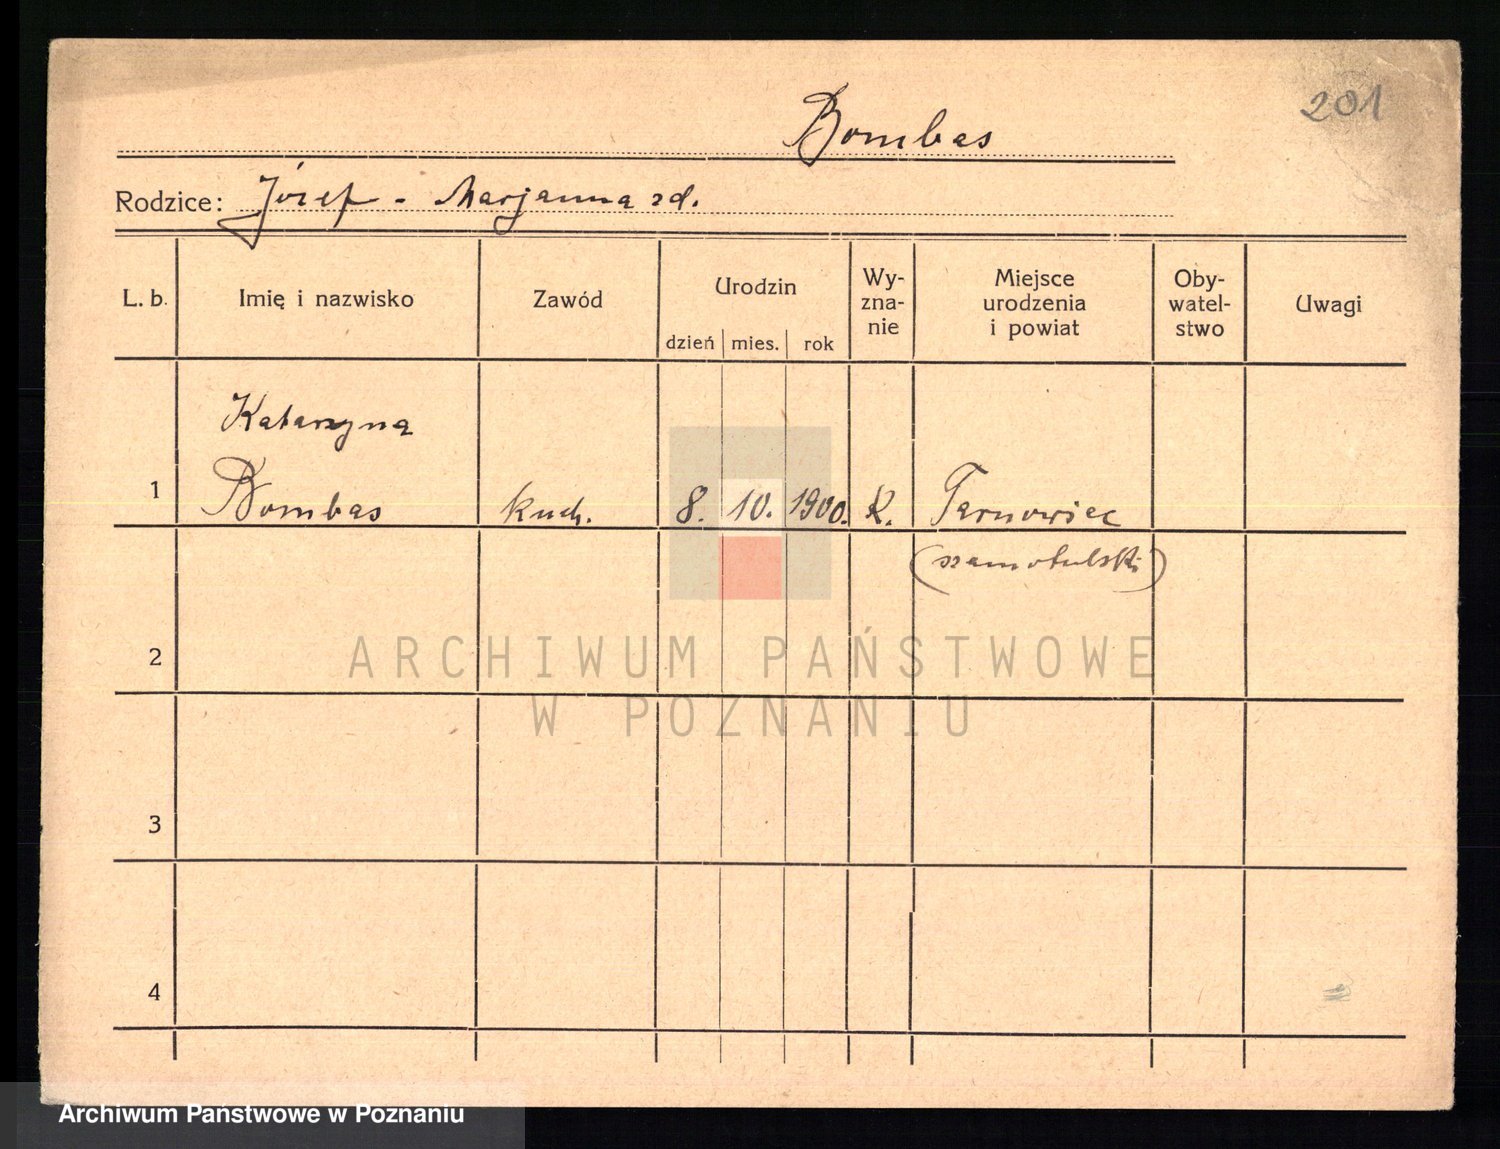 201
Bombas
Rodzice: Józef - Marjanna zd.
L. b. Imię i nazwisko Zawód Urodzin dzień mies. rok Wy-zna-nie Miejsce urodzenia i powiat Oby-watel-stwo Uwagi
Katarzyna
1 Bombas kuch. 8. 10. 1900. K. Tarnowiec
(szamotulski)
2
3
4
ARCHIWUM PAŃSTWOWE
W POZNANIU
Archiwum Państwowe w Poznaniu